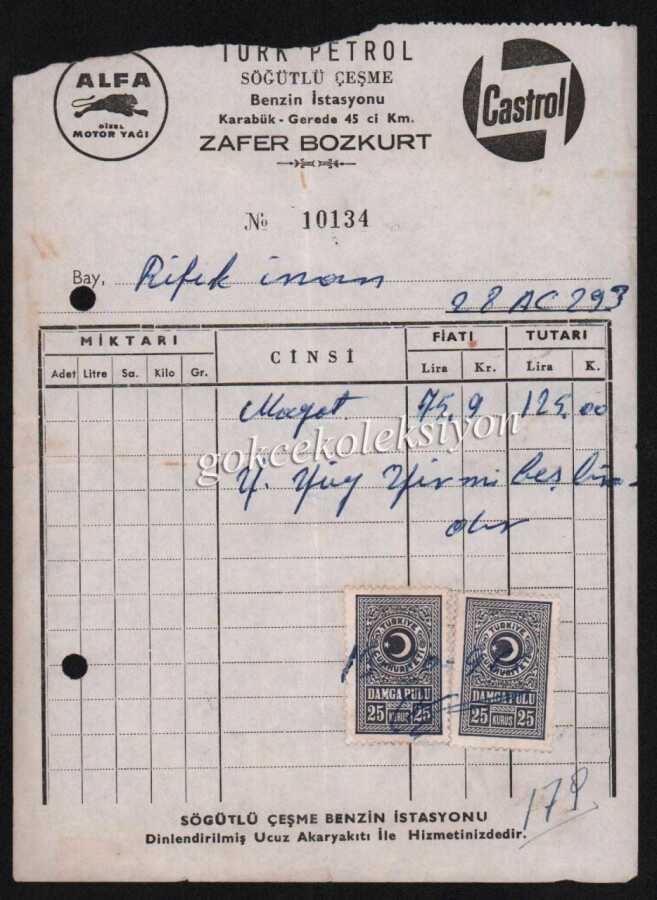 TÜRK PETROL
SÖĞÜTLÜ ÇEŞME
Benzin İstasyonu
Karabük - Gerede 45 ci Km.
ZAFER BOZKURT
ALFA
DİZEL
MOTOR YAĞI
Castrol
№ 10134
Bay, Rifik inan
28 AC 293
MİKTARI CİNSİ FİATI TUTARI
Adet Litre Sa. Kilo Gr. Lira Kr. Lira K.
Mazot 75,9 125,00
gokcekoleksiyon
Y. Yüz Yirmi beş lira-
dır
TÜRKİYE CUMHURİYETİ
DAMGA PULU
25 KURUŞ 25
TÜRKİYE CUMHURİYETİ
DAMGA PULU
25 KURUŞ 25
179
SÖĞÜTLÜ ÇEŞME BENZİN İSTASYONU
Dinlendirilmiş Ucuz Akaryakıtı İle Hizmetinizdedir.